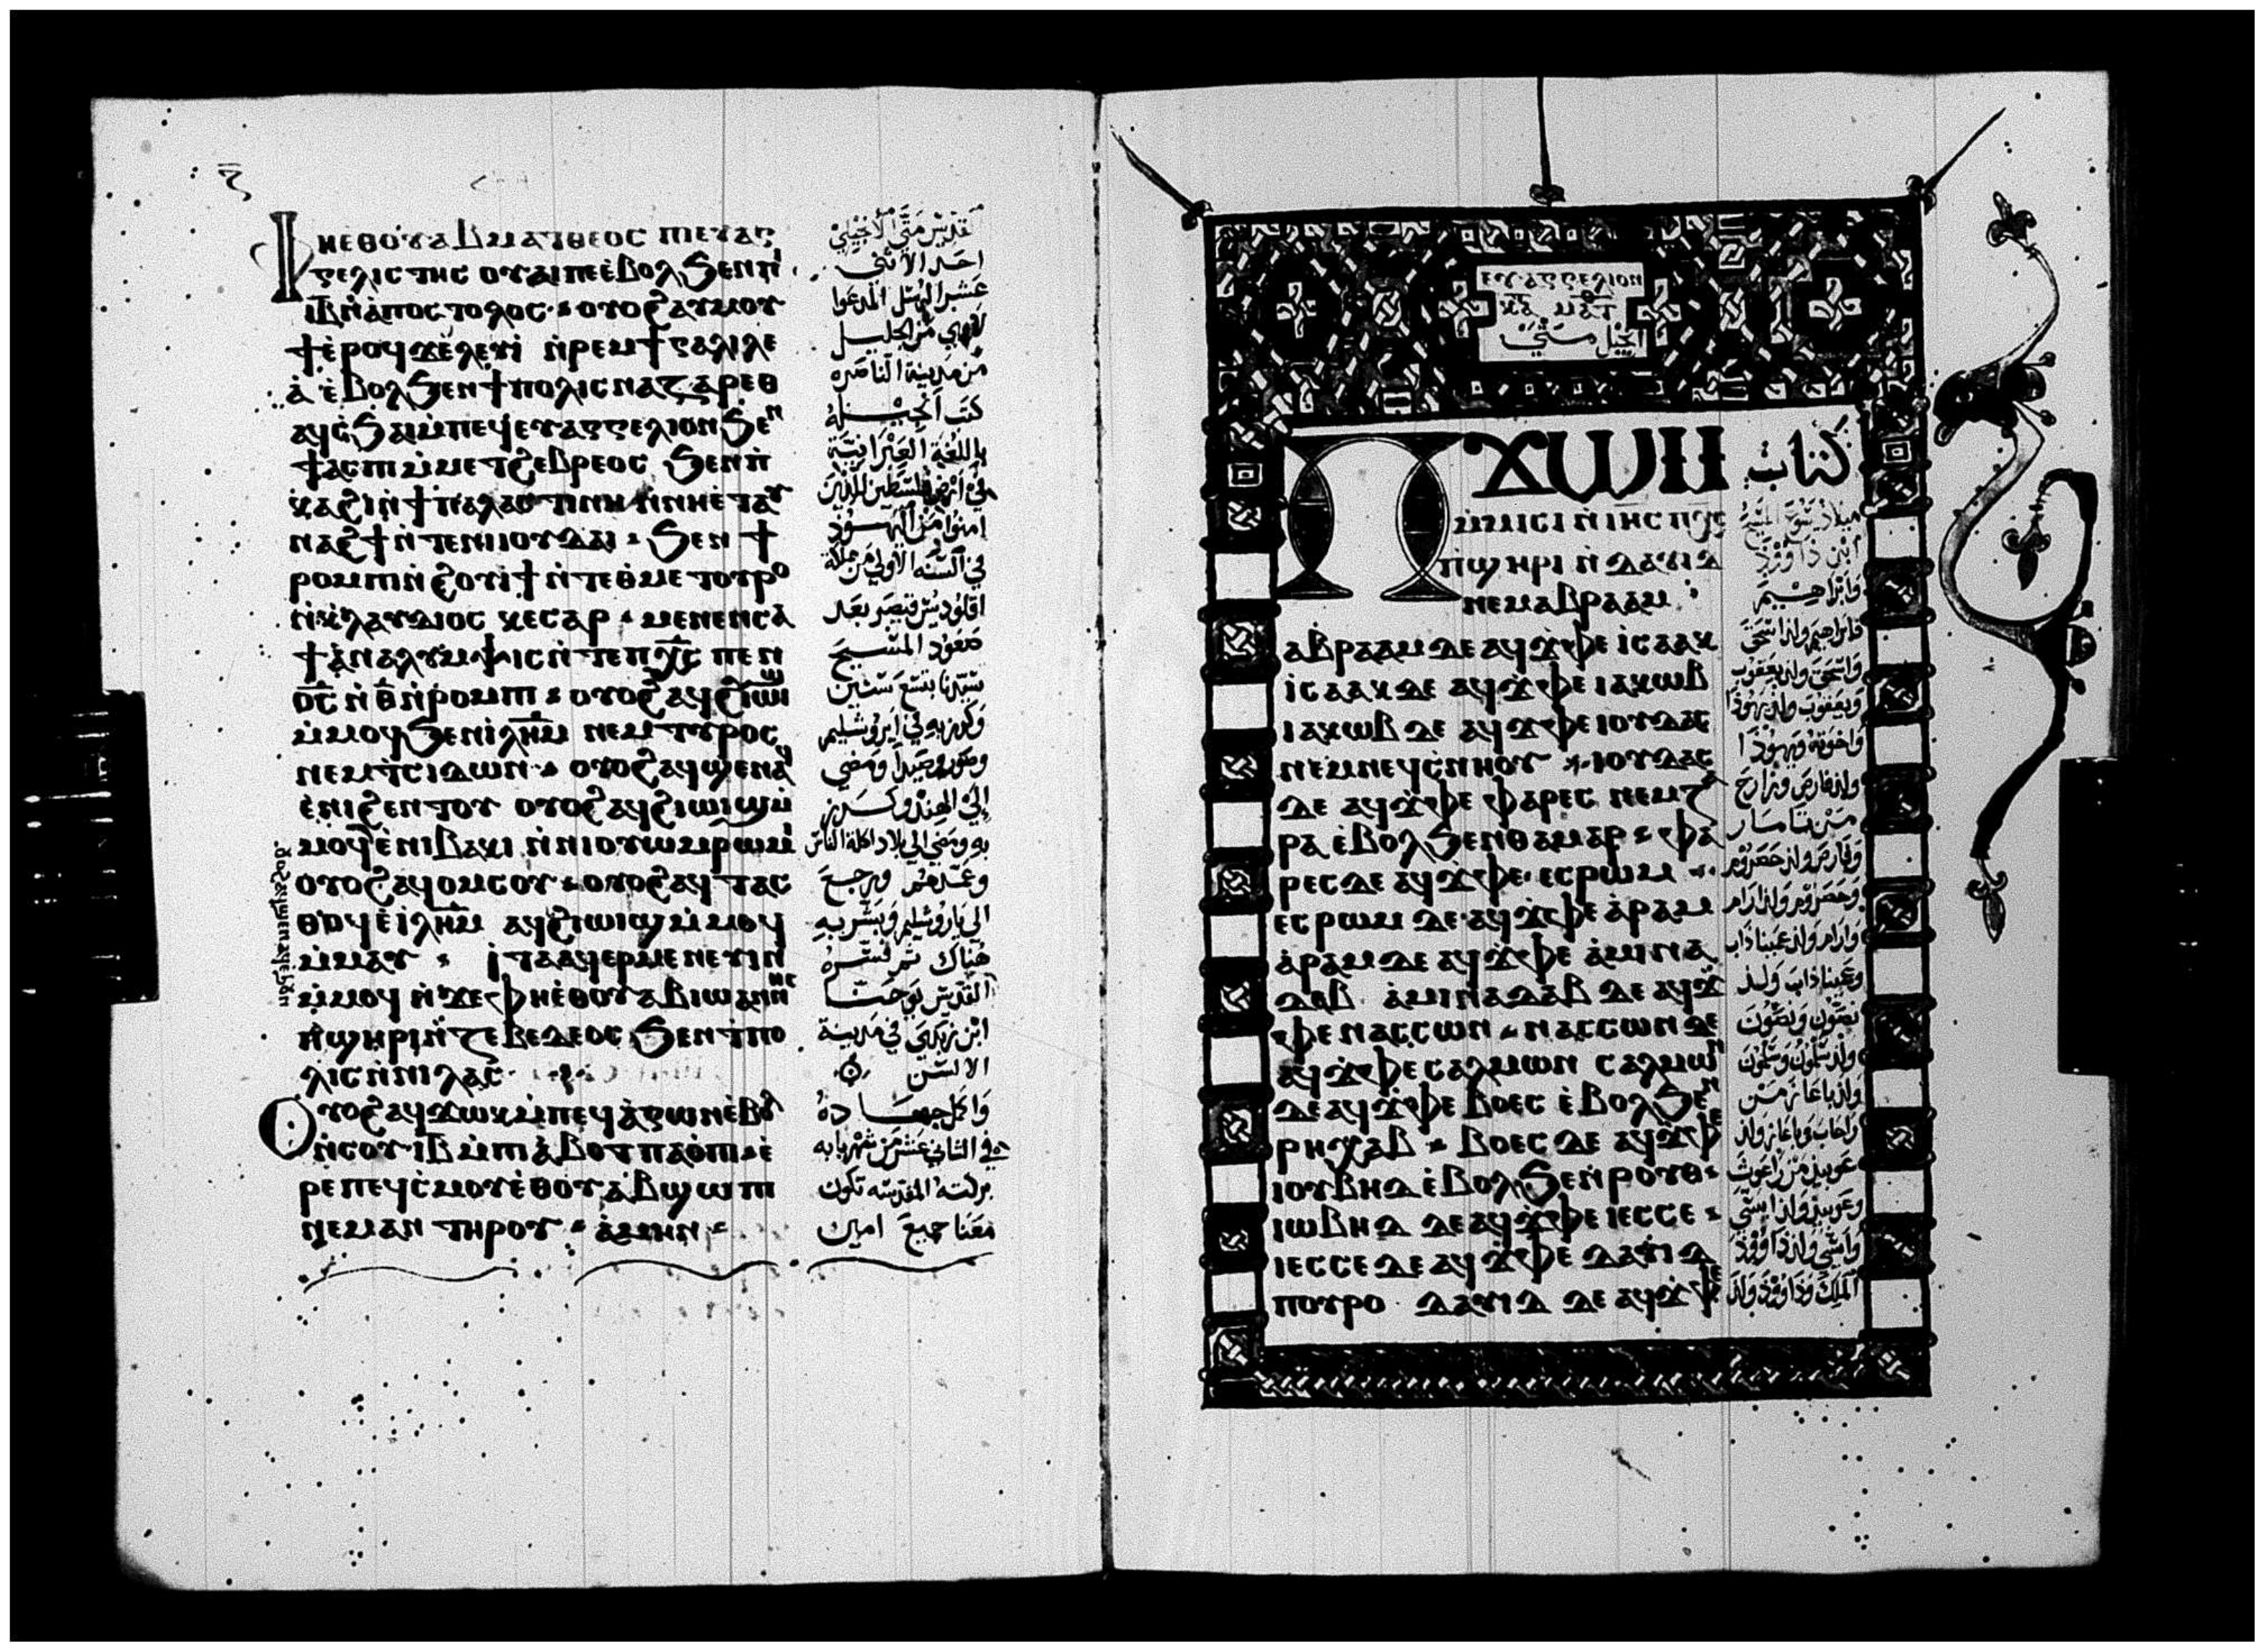 ⲫⲏⲉⲑⲟⲩⲁⲃ ⲙⲁⲧⲑⲉⲟⲥ ⲡⲓⲉⲩⲁⲅ
ⲅⲉⲗⲓⲥⲧⲏⲥ ⲟⲩⲁⲓ ⲡⲉ ⲉⲃⲟⲗ ϧⲉⲛ ⲡⲓ
ⲓⲃ ⲛ̀ⲁⲡⲟⲥⲧⲟⲗⲟⲥ ⲟⲩⲟϩ ⲁⲩⲙⲟⲩ
ϯ ⲉ̀ⲣⲟϥ ϫⲉ ⲗⲉⲩⲓ ⲛ̀ⲣⲉⲙ ϯⲅⲁⲗⲓⲗⲉ
ⲁ ⲉ̀ⲃⲟⲗ ϧⲉⲛ ϯⲡⲟⲗⲓⲥ ⲛⲁⲍⲁⲣⲉⲑ
ⲁϥⲥϧⲁⲓ ⲙ̀ⲡⲉϥⲉⲩⲁⲅⲅⲉⲗⲓⲟⲛ ϧⲉⲛ
ϯⲁⲥⲡⲓ ⲙ̀ⲙⲉⲧϩⲉⲃⲣⲉⲟⲥ ϧⲉⲛ ⲡ
ⲕⲁϩⲓ ⲛ̀ϯⲡⲁⲗⲁⲥⲧⲓⲛⲏ ⲛ̀ⲛⲏⲉⲧⲁⲩ
ⲛⲁϩϯ ⲛ̀ⲧⲉ ⲛⲓⲓⲟⲩⲇⲁⲓ ϧⲉⲛ ϯ
ⲣⲟⲙⲡⲓ ⲛ̀ϩⲟⲩⲓϯ ⲛ̀ⲧⲉ ⲑⲙⲉⲧⲟⲩⲣⲟ
ⲛ̀ⲕⲗⲁⲩⲇⲓⲟⲥ ⲕⲉⲥⲁⲣ ⲙⲉⲛⲉⲛⲥⲁ
ϯⲁⲛⲁⲗⲩⲙⲯⲓⲥ ⲛ̀ⲧⲉ ⲡⲭ̅ⲥ̅ ⲡⲉⲛ
ⲟ̅ⲥ̅ ⲛ̀ ⲑ̅ ⲛ̀ⲣⲟⲙⲡⲓ ⲟⲩⲟϩ ⲁϥϩⲓⲱⲓϣ
ⲙ̀ⲙⲟϥ ϧⲉⲛ ⲓⲗⲏⲙ ⲛⲉⲙ ⲧⲩⲣⲟⲥ
ⲛⲉⲙ ⲧⲥⲓⲇⲱⲛ ⲟⲩⲟϩ ⲁϥϣⲉⲛⲁϥ
ⲉ̀ⲛⲓϩⲉⲛⲧⲟⲩ ⲟⲩⲟϩ ⲁϥϩⲓⲱⲓϣ ⲙ̀
ⲙⲟϥ ⲉ̀ⲛⲓⲃⲁⲕⲓ ⲛ̀ⲛⲓⲟⲩⲱⲙⲣⲱⲙⲓ
ⲟⲩⲟϩ ⲁϥⲟⲙⲥⲟⲩ ⲟⲩⲟϩ ⲁϥⲧⲁⲥ
ⲑⲟϥ ⲉ̀ⲓⲗⲏⲙ ⲁϥϩⲓⲱⲓϣ ⲙ̀ⲙⲟϥ
ⲙ̀ⲙⲁⲩ ⲓⲧⲁ ⲁϥⲉⲣⲙⲉⲛⲉⲩⲓⲛ
ⲙ̀ⲙⲟϥ ⲛ̀ϫⲉ ⲫⲏⲉⲑⲟⲩⲁⲃ ⲓⲱⲁⲛⲛⲏⲥ
ⲡ̀ϣⲏⲣⲓ ⲛ̀ⲍⲉⲃⲉⲇⲉⲟⲥ ϧⲉⲛ ϯⲡⲟ
ⲗⲓⲥ ⲛ̀ⲛⲓⲗⲁⲥ
ⲟⲩⲟϩ ⲁϥϫⲱⲕ ⲙ̀ⲡⲉϥⲁⲅⲱⲛ ⲉ̀ⲃⲟⲗ
ⲛ̀ⲥⲟⲩ ⲓⲃ ⲙ̀ⲡⲓⲁ̀ⲃⲟⲧ ⲡⲁⲟ̀ⲡⲓ ⲉ̀
ⲣⲉ ⲡⲉϥⲥⲙⲟⲩ ⲉⲑⲟⲩⲁⲃ ϣⲱⲡⲓ
ⲛⲉⲙⲁⲛ ⲧⲏⲣⲟⲩ ⲁ̀ⲙⲏⲛ
القديس متى الانجيلي
احد الاثني
عشر الرسل المدعوا
لاوي من الجليل
من مدينة الناصره
كتب انجيله
باللغة العبرانية
في ارض فلسطين للذين
امنوا من اليهود
في السنه الاولي من مملكة
اقلوديس قيصر بعد
صعود المسيح
سيدنا بتسع سنين
وكرز به في ايروشليم
وصور وصيدا ومضي
إلي الهند وكرز
به ومضي الي بلاد اكلة الناس
وعمدهم ورجع
الي يروشليم وبشر به
هناك ثم فسره
القديس يوحنا
ابن زبدي في مدينة
الالسن
واكمل جهاده
في الثاني عشر من شهر بابه
بركته المقدسه تكون
معنا جميع امين
ⲉⲩⲁⲅⲅⲉⲗⲓⲟⲛ
ⲕⲁ ⲙⲁⲧ
انجيل متي
ⲡϫⲱⲙ كتاب
ⲙ̀ⲙⲓⲥⲓ ⲛ̀ ⲓⲏ̅ⲥ̅ ⲡⲭ̅ⲥ̅
ⲡ̀ϣⲏⲣⲓ ⲛ̀ ⲇⲁⲩⲓⲇ
ⲛⲉⲙ ⲁⲃⲣⲁⲁⲙ
ⲁⲃⲣⲁⲁⲙ ⲇⲉ ⲁϥϫ̀ⲫⲉ ⲓⲥⲁⲁⲕ
ⲓⲥⲁⲁⲕ ⲇⲉ ⲁϥϫ̀ⲫⲉ ⲓⲁⲕⲱⲃ
ⲓⲁⲕⲱⲃ ⲇⲉ ⲁϥϫ̀ⲫⲉ ⲓⲟⲩⲇⲁⲥ
ⲛⲉⲙ ⲛⲉϥⲥⲛⲏⲟⲩ ⲓⲟⲩⲇⲁⲥ
ⲇⲉ ⲁϥϫ̀ⲫⲉ ⲫⲁⲣⲉⲥ ⲛⲉⲙ ⲍⲁ
ⲣⲁ ⲉ̀ⲃⲟⲗ ϧⲉⲛ ⲑⲁⲙⲁⲣ ⲫⲁ
ⲣⲉⲥ ⲇⲉ ⲁϥϫ̀ⲫⲉ ⲉⲥⲣⲱⲙ
ⲉⲥⲣⲱⲙ ⲇⲉ ⲁϥϫ̀ⲫⲉ ⲁ̀ⲣⲁⲙ
ⲁ̀ⲣⲁⲙ ⲇⲉ ⲁϥϫ̀ⲫⲉ ⲁ̀ⲙⲓⲛⲁ
ⲇⲁⲃ ⲁ̀ⲙⲓⲛⲁⲇⲁⲃ ⲇⲉ ⲁϥϫ̀
ⲫⲉ ⲛⲁⲥⲥⲱⲛ ⲛⲁⲥⲥⲱⲛ ⲇⲉ
ⲁϥϫ̀ⲫⲉ ⲥⲁⲗⲙⲱⲛ ⲥⲁⲗⲙⲱⲛ
ⲇⲉ ⲁϥϫ̀ⲫⲉ ⲃⲟⲉⲥ ⲉ̀ⲃⲟⲗ ϧⲉⲛ
ⲣⲏⲭⲁⲃ ⲃⲟⲉⲥ ⲇⲉ ⲁϥϫ̀ⲫⲉ
ⲓⲟⲩⲃⲏⲇ ⲉ̀ⲃⲟⲗ ϧⲉⲛ ⲣⲟⲩⲑ
ⲓⲱⲃⲏⲇ ⲇⲉ ⲁϥϫ̀ⲫⲉ ⲓⲉⲥⲥⲉ
ⲓⲉⲥⲥⲉ ⲇⲉ ⲁϥϫ̀ⲫⲉ ⲇⲁⲩⲓⲇ
ⲡⲟⲩⲣⲟ ⲇⲁⲩⲓⲇ ⲇⲉ ⲁϥϫ̀ⲫⲉ
ميلاد يسوع المسيح
ابن داوود
وابراهيم
فابراهيم ولد اسحق
واسحق ولد يعقوب
ويعقوب ولد يهودا
واخوته ويهودا
ولد فارص وزارح
من تامار
وفارص ولد حصروم
وحصروم ولد ارام
وارام ولد عميناداب
وعميناداب ولد
نصون ونصون
ولد سلمون وسلمون
ولد باعاز من
راحاب وباعاز ولد
عوبيد من راعوث
وعوبيد ولد ايسي
وايسي ولد داوود
الملك وداوود ولد